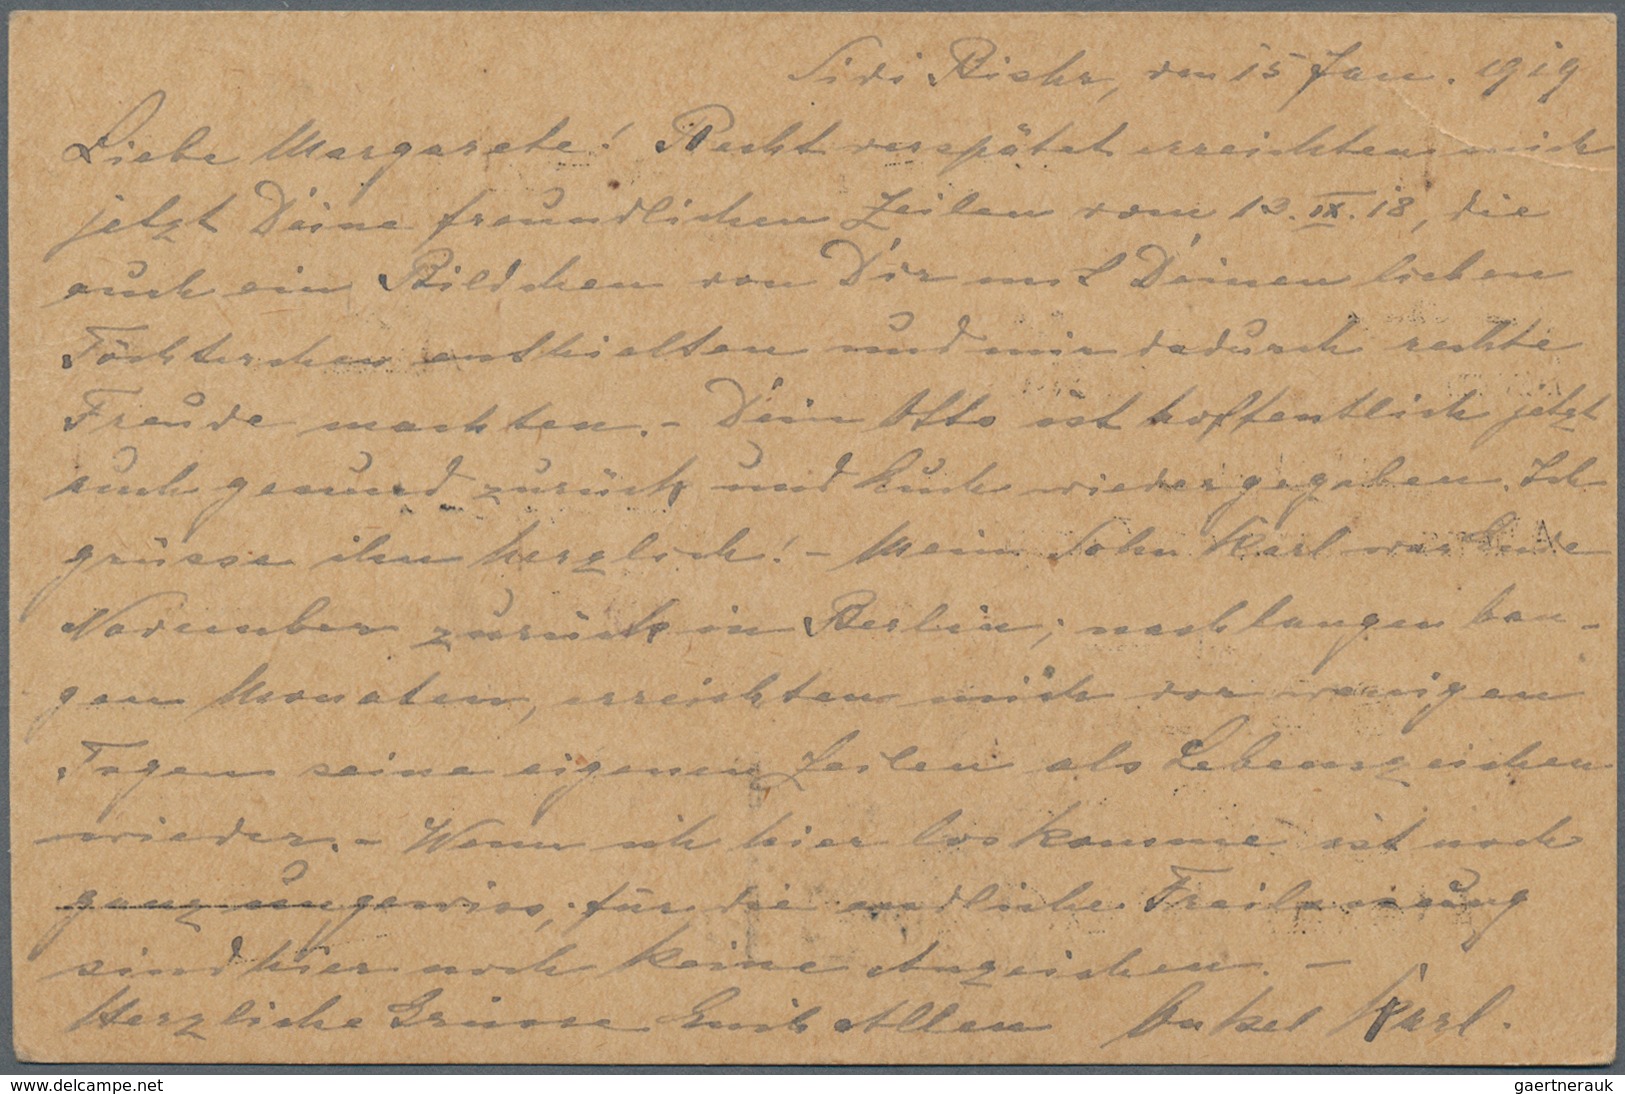 Sidi Bichr, den 15 Jan. 1919
Liebe Margarete! Recht verspätet erreichten mich
jetzt Deine freundlichen Zeilen vom 12.IX.18, die
auch ein Bildchen von Dir mit Deinen lieben
Töchterchen enthielten und mir dadurch rechte
Freude machten. - Dein Otto ist hoffentlich jetzt
auch gesund zurück und Euch wiedergegeben. Ich
grüsse ihn herzlich! - Mein Sohn Karl war Ende
November zurück in Berlin; nach langen ban-
gen Monaten, erreichten mich vor wenigen
Tagen seine eigenen Zeilen als Lebenszeichen
wieder. - Wenn ich hier loskomme ist noch
ganz ungewiss, für die endliche Freilassung
sind hier noch keine Anzeichen. -
Herzliche Grüsse Euch Allen Onkel Karl.
www.delcampe.net
gaertnerauk